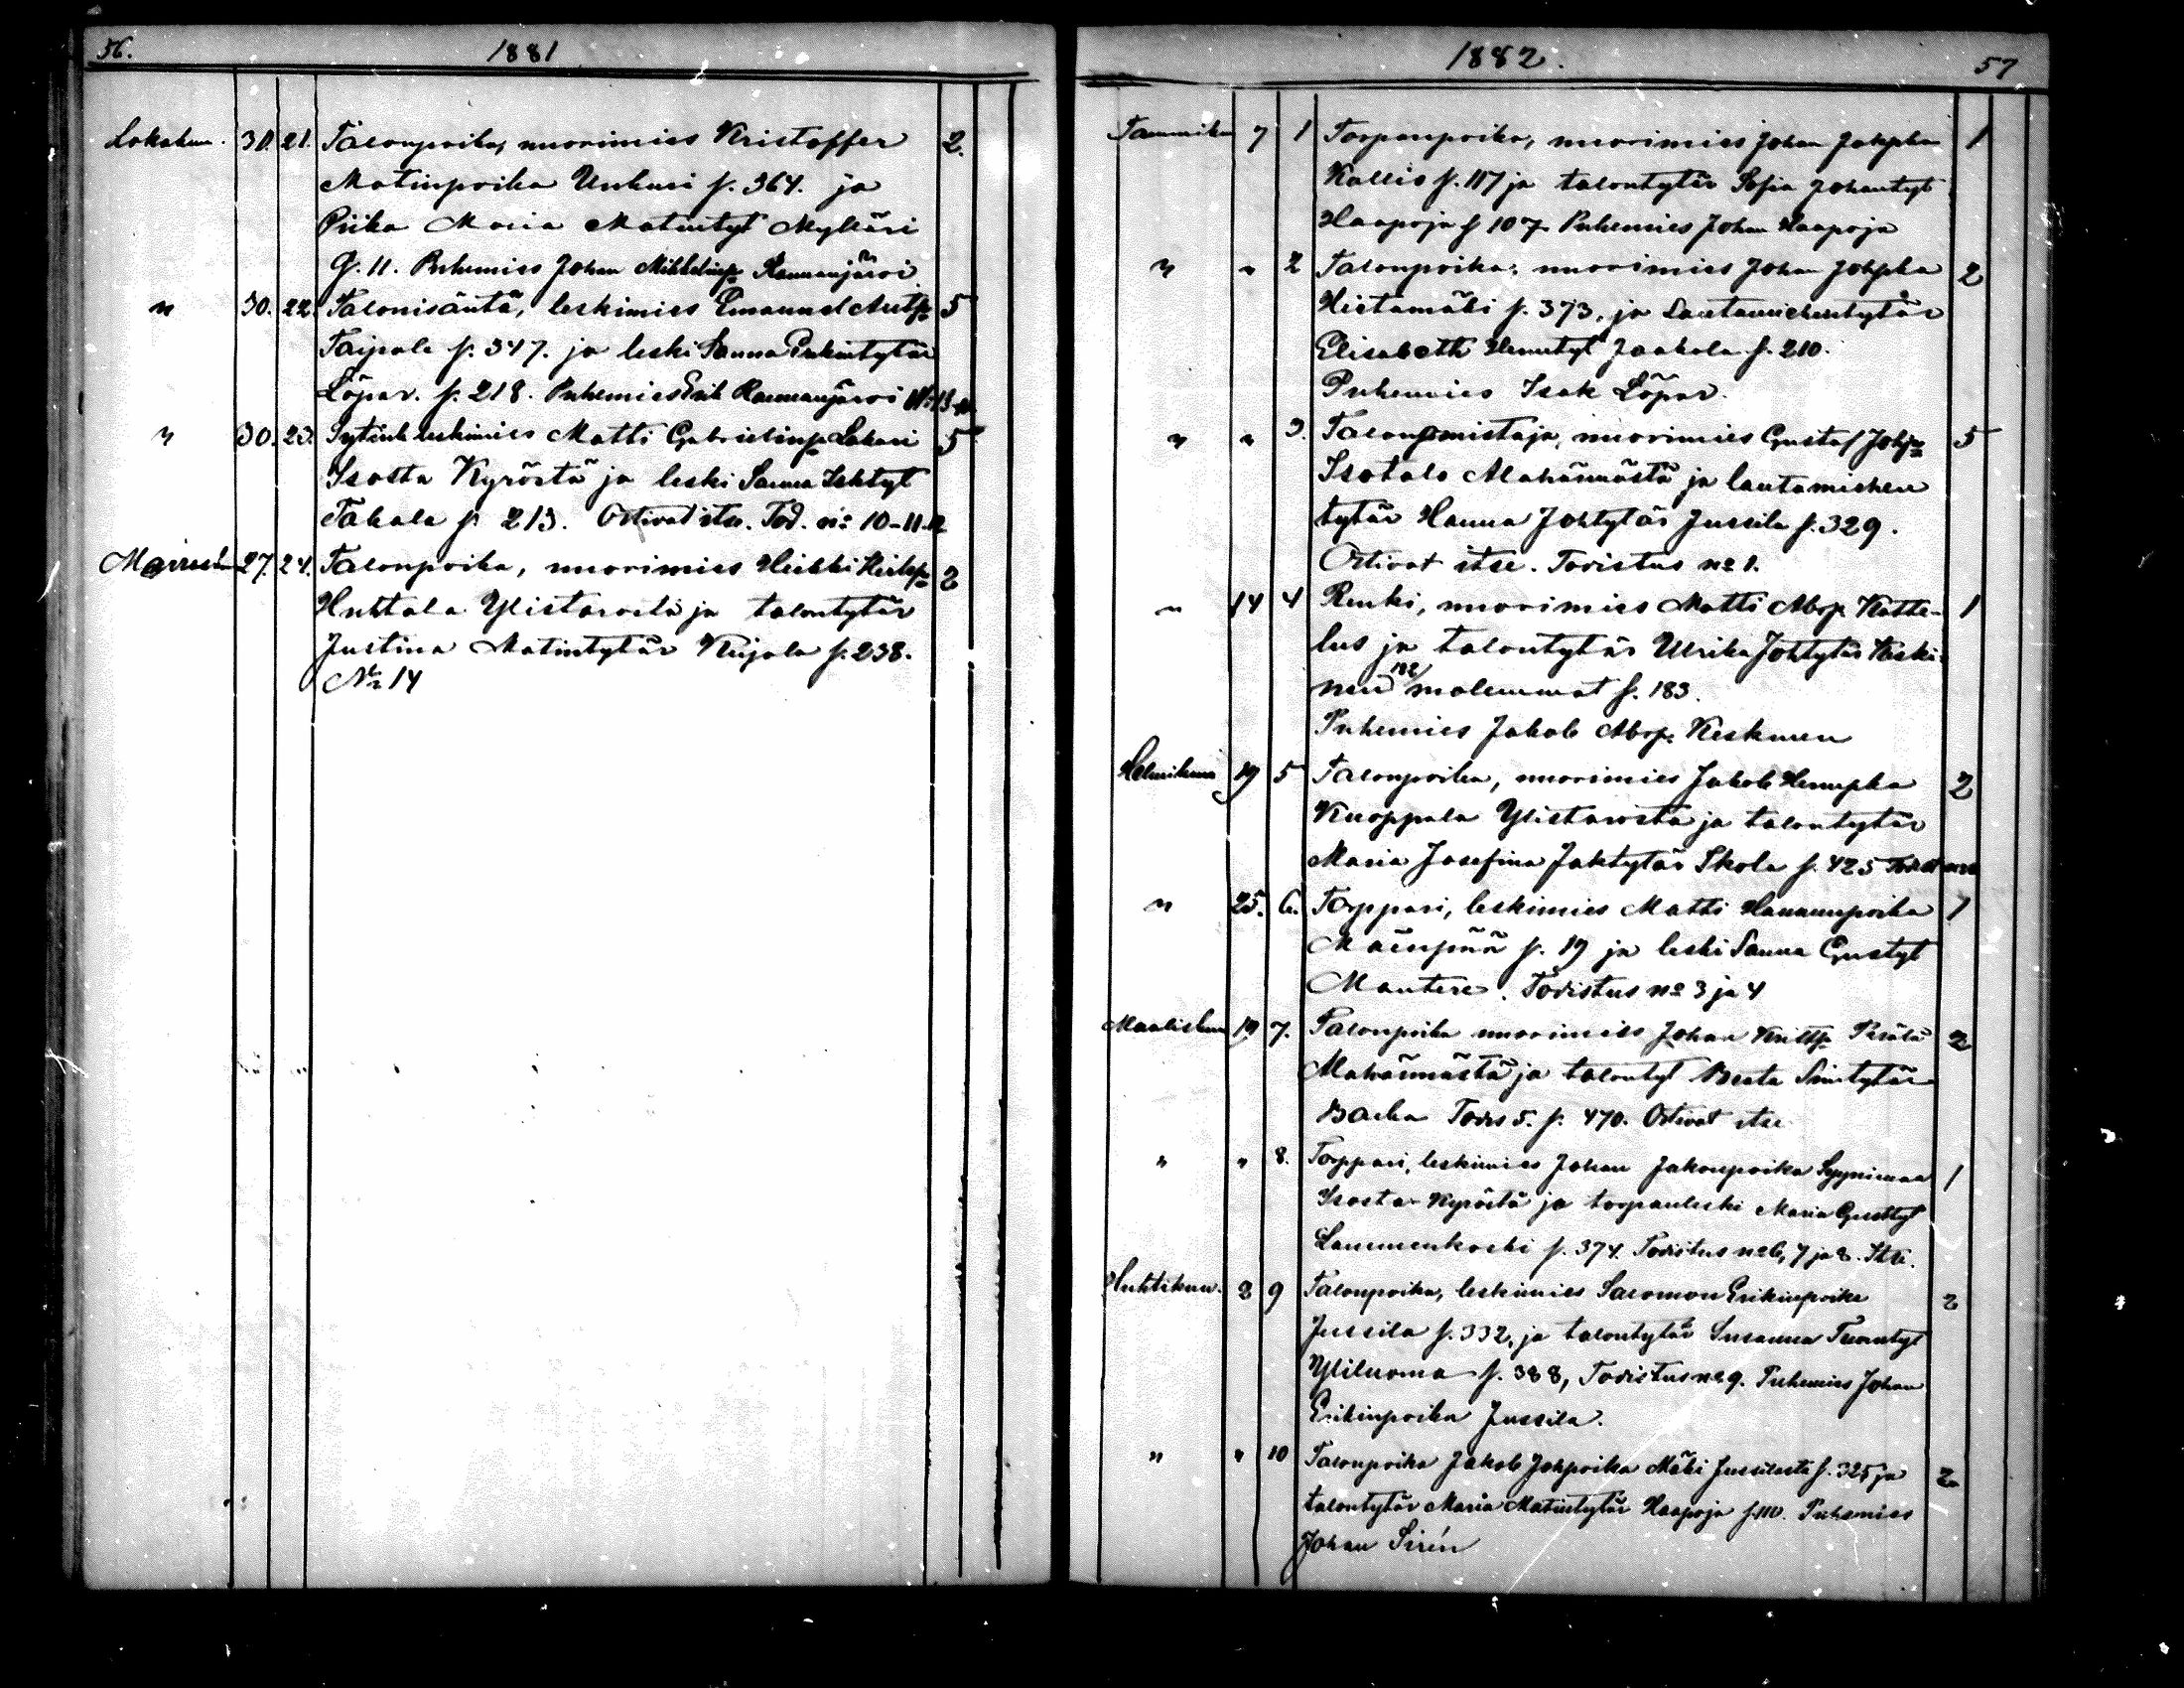 56. 1881
Lokakuu. 30. 21. Talonpoika, nuorimies Kristoffer 2.
Matinpoika Unkuri s. 364. ja
Piika Maria Matintyt Mylläri
G. 11. Puhemies Johan Mikkelinp. Rannanjärvi
" 30. 22. Talonisäntä, leskimies Emanuel Antp. 5
Taipale s. 347. ja leski Sanna Erkintytär
Löpar. s. 218. Puhemies Erik Rannanjärvi
" 30. 23. leskimies Matti Gabrielinp. Lakari 5
Isosta Kyröstä ja leski Sanna Isktyt
Takala s. 213. Ostivat itse. Tod. no 10-11-12
27. 24. Talonpoika, nuorimies Heikki Heikp. 2
Huhtala Ylistarosta ja talontytär
Justina Matintytär Kujala s. 238.
No 14
1882. 57
Tammikuu 7 1 Torpanpoika, nuorimies Johan Jakpka 1
Kallis s. 117 ja talontytär Sofia Johantyt
Haapoja s 107. Puhemies Johan Haapoja
" " 2 Talonpoika, nuorimies Johan Johpka 2
Hietamäki s. 373, ja Lautamiehentytär
Elisabeth Henrtyt Jaakola s. 210.
Puhemies Isak Löpar.
" " 3. Talonomistaja, nuorimies Gustaf Johp. 5
Isotalo Alahärmästä ja lautamiehen
tytär Hanna Johtytär Jussila s. 329.
Ostivat itse. Todistus no 1.
" 14 4 Renki, nuorimies Matti Abrp. Katte- 1
lus ja talontytär Ulrika Johtytär Keski-
nen 182/ molemmat s. 183.
Puhemies Jakob Abrp. Keskinen
Helmikuu 19 5 Talonpoika, nuorimies Jakob Henrpka 2
Kuoppala Ylistarosta ja talontytär
Maria Josefina Jaktytär Skola s. 425
" 25. 6. Torppari, leskimies Matti Hannunpoika 1
Mäenpää s. 19 ja leski Sanna Gustyt
Mantere. Todistus no 3 ja 4
Maaliskuu 19 7. Talonpoika nuorimies Johan 2
Alahärmästä ja talontyt Beata Simtytär
Backa Todis 5. s. 470. Ostivat itse
" " 8. Torppari, leskimies Johan Jakonpoika Syynimaa 1
Isosta Kyröstä ja torpanleski Maria Gusttyt
Lammenkoski s. 374. Todistus no 6, 7 ja 8. Itse.
Huhtikuu. 2 9 Talonpoika, leskimies Salomon Erikinpoika 2
Jussila s. 332, ja talontytär Susanna Tuomtyt
Yliluoma s. 388, Todistus no 9. Puhemies Johan
Erikinpoika Jussila.
" " 10 Talonpoika Jakob Johpoika Mäki Jussilasta s. 325 ja 2
talontytär Maria Matintytär Haapoja s. 110. Puhemies
Johan Sirén